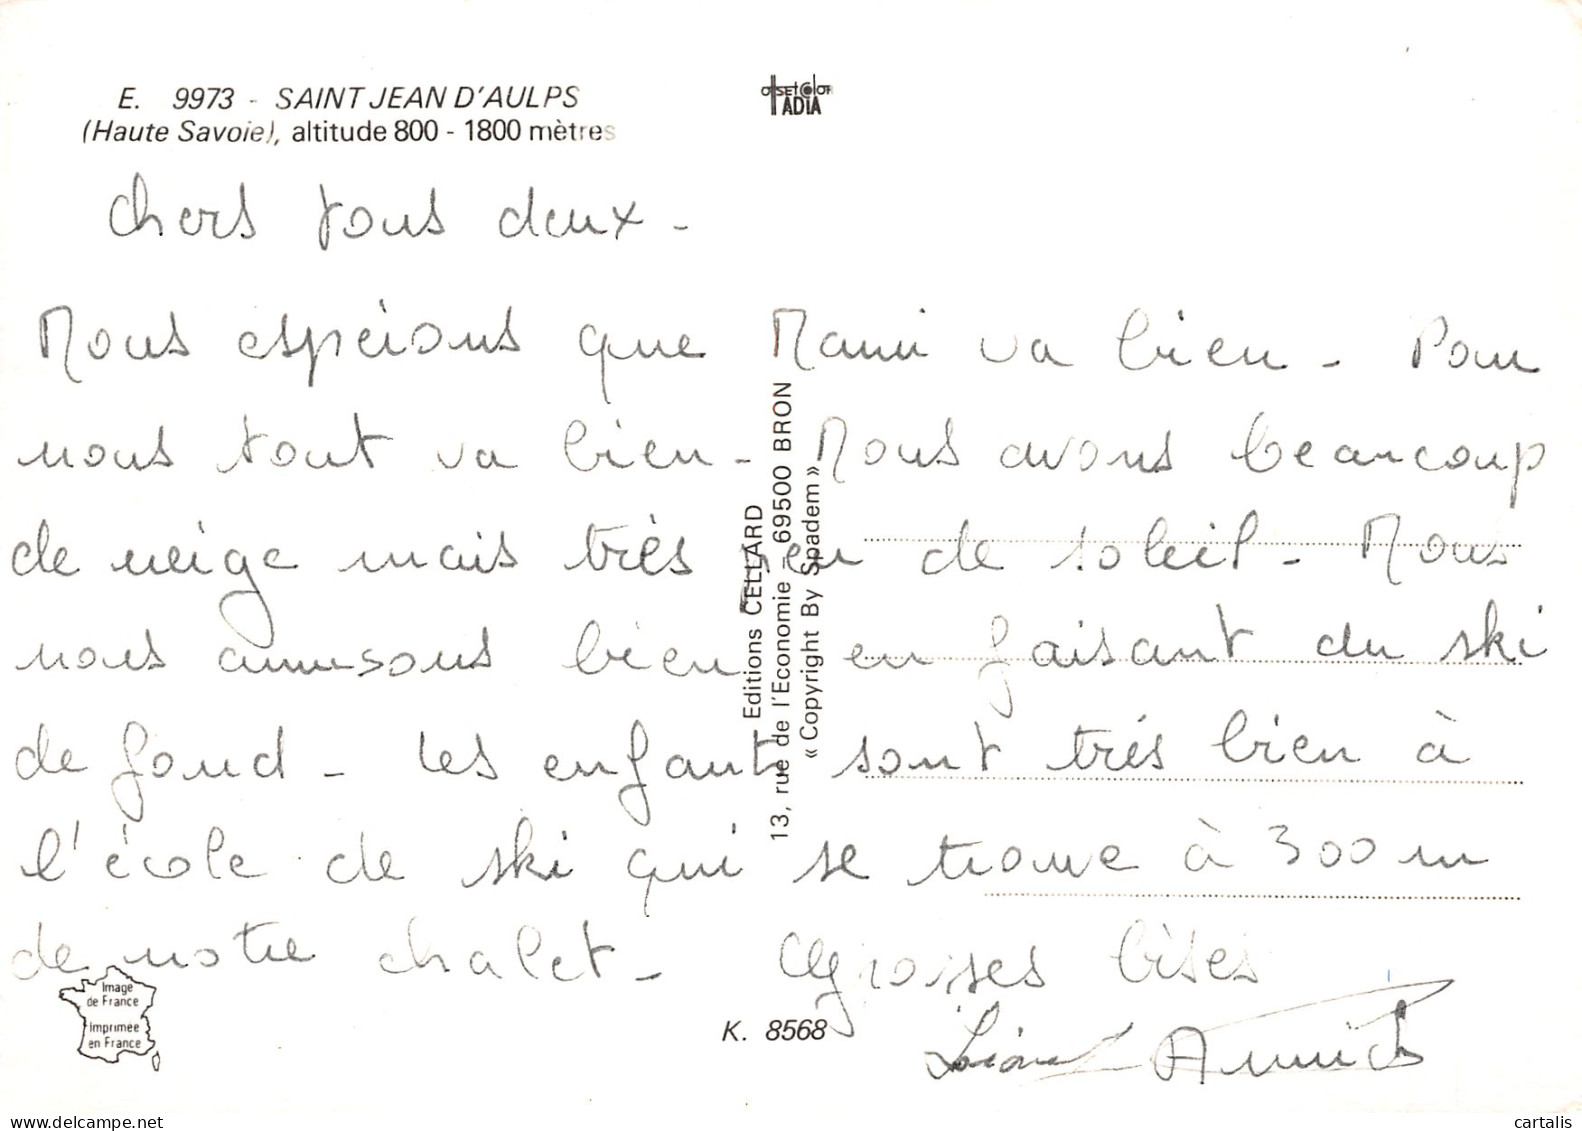 E. 9973 - SAINT JEAN D'AULPS
(Haute Savoie), altitude 800 - 1800 mètres
OFFSET COLOR
ADIA
Chers tous deux -
Nous espérons que Mami va bien - Pour
nous tout va bien - Nous avons beaucoup
de neige mais très peu de soleil - Nous
nous amusons bien en faisant du ski
de fond - Les enfants sont très bien à
l'école de ski qui se trouve à 300 m
de notre chalet - Grosses bises
Lionel Annick
Editions CELLARD
13, rue de l'Economie - 69500 BRON
« Copyright By Spadem »
Image
de France
Imprimée
en France
K. 8568
cartalis